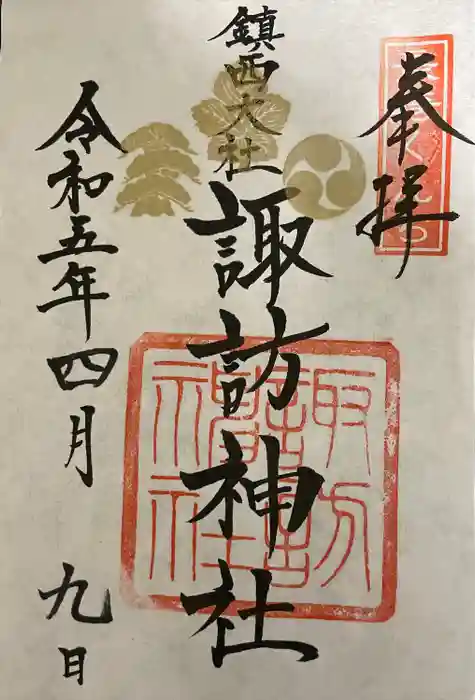 奉拝
鎮西大社
諏訪神社
令和五年四月
九日
諏訪
神社